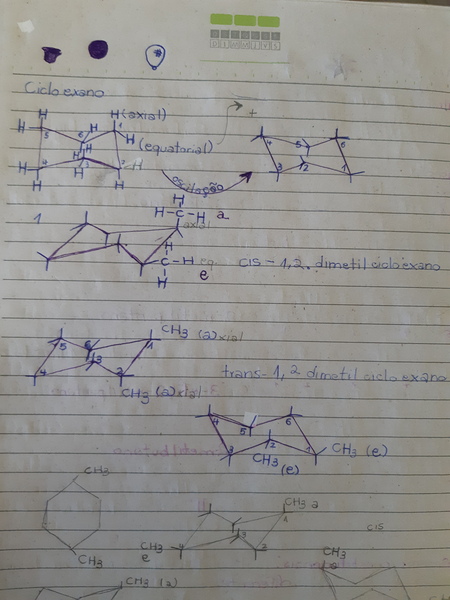 D L M M J V S
Ciclo exano
H H(axial)
H 5 6 H 1 H (equatorial)
H 4 3 2 H
H H
oscilação
+
4 5 6
3 2 1
1
H
H-C-H a
axial
H
C-H eq.
H e
cis-1,2. dimetil ciclo exano
CH3 (a)xial
5 6 1
4 3 2
CH3 (a)xial
trans-1,2 dimetil ciclo exano
4 5 6
3 2 1 CH3 (e)
CH3 (e)
CH3
CH3
CH3 a
1
4 3 2
CH3 e
cis
CH3
CH3 (a)